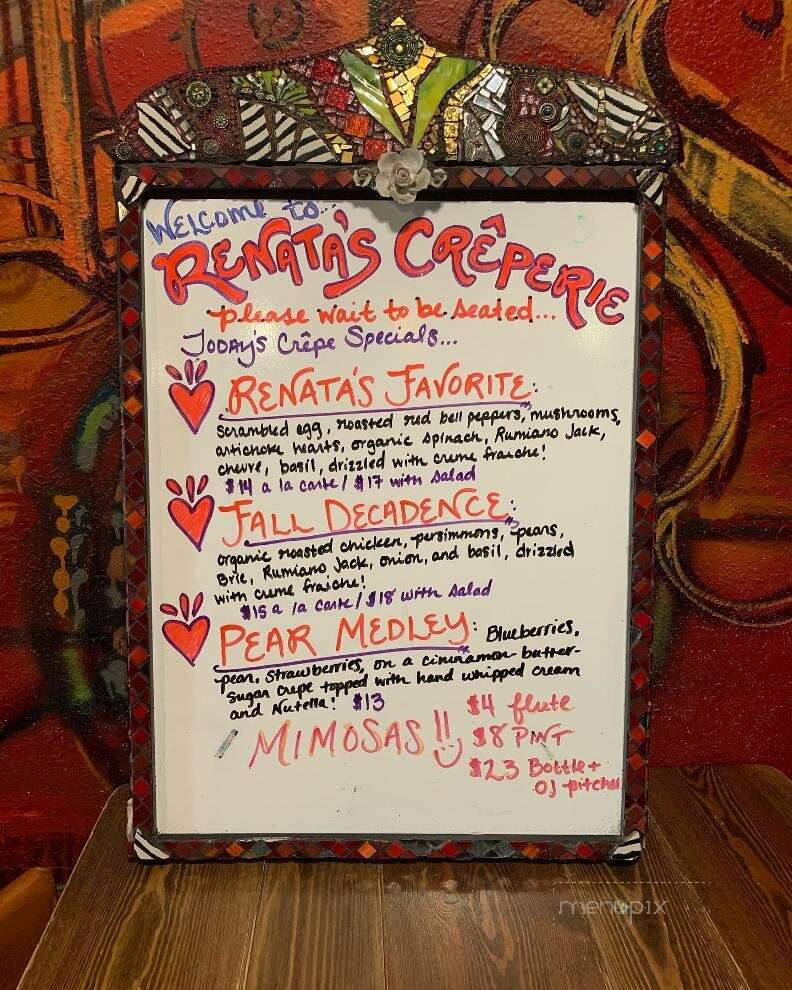 WELCOME to...
RENATA'S CRÊPERIE
please wait to be seated...
TODAY'S Crêpe Specials...
RENATA'S FAVORITE:
scrambled egg, roasted red bell peppers, mushrooms,
artichoke hearts, organic spinach, Rumiano Jack,
chevre, basil, drizzled with creme fraiche!
$14 a la carte / $17 with salad
FALL DECADENCE:
organic roasted chicken, persimmons, pears,
Brie, Rumiano Jack, onion, and basil, drizzled
with creme fraiche!
$15 a la carte / $18 with salad
PEAR MEDLEY: Blueberries,
pear, strawberries, on a cinnamon-butter-
sugar crepe topped with hand whipped cream
and Nutella! $13
MIMOSAS!!
$4 flute
$8 PINT
$23 Bottle +
OJ pitcher
menupix